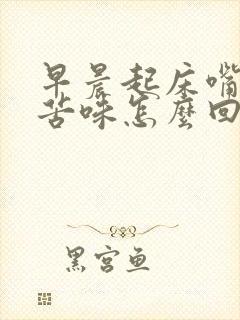 早晨起床嘴
苦咪怎麼回
黑宫鱼